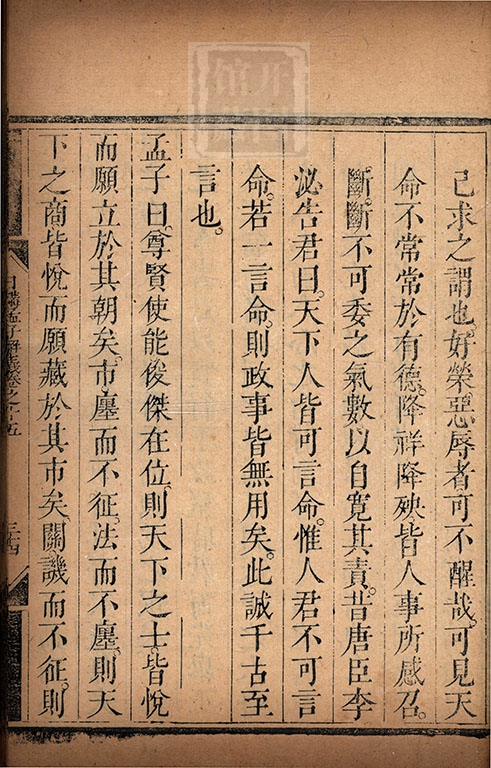 己求之謂也。好榮惡辱者可不醒哉。可見天
命不常常於有德。降祥降殃皆人事所感召。
斷斷不可委之氣數以自寬其責。昔唐臣李
泌告君曰。天下人皆可言命。惟人君不可言
命。若一言命。則政事皆無用矣。此誠千古至
言也。
孟子曰。尊賢使能俊傑在位。則天下之士。皆悅
而願立於其朝矣。市廛而不征。法而不廛。則天
下之商皆悅而願藏於其市矣。關譏而不征。則
日講孟子解義卷之十五
三十四